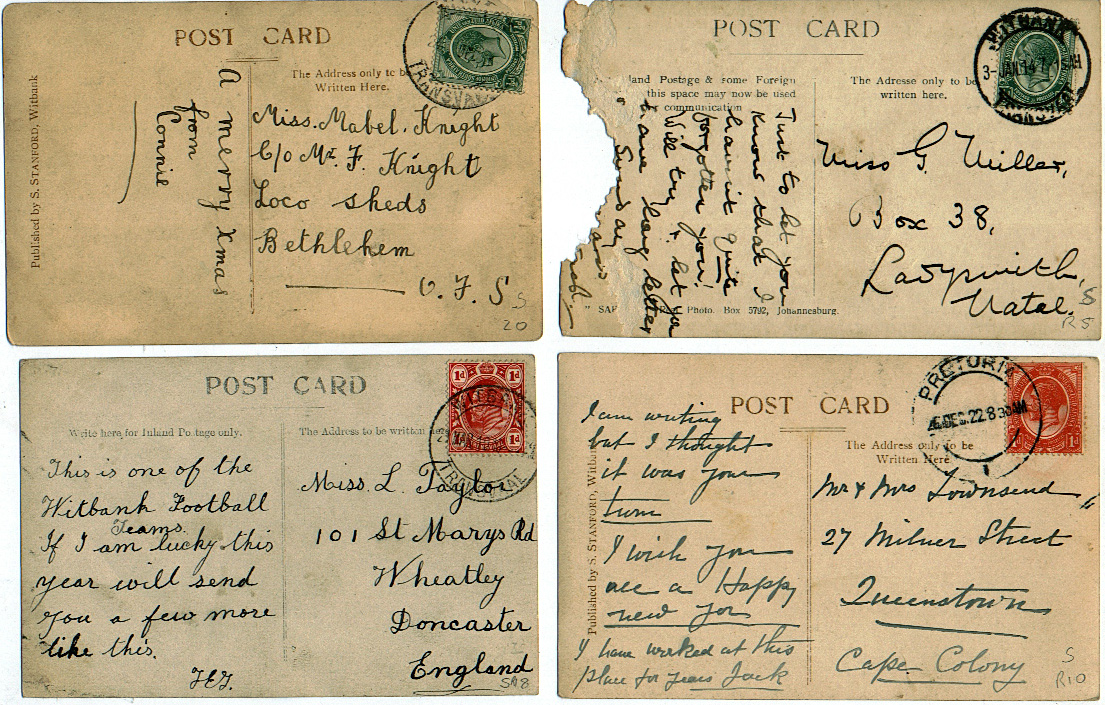 POST CARD
The Address only to be
Written Here.
TRANSVAAL
Published by S. STANFORD, Witbank
A merry Xmas
from
Connie
Miss. Mabel. Knight
C/o Mr. F. Knight
Loco sheds
Bethlehem
O. F. S
S
20
POST CARD
land Postage & some Foreign
this space may now be used
communication
The Adresse only to be
written here.
WITBANK
3-JAN 14
TRANSVAAL
Just to let you
know that I
haven't quite
forgotten you!
Will try & let you
have long letter
Sunday
Miss G. Miller,
Box 38,
Ladysmith,
Natal.
Photo. Box 5792, Johannesburg.
S
R5
POST CARD
Write here for Inland Postage only.
The Address to be written here
1d 1d
1d
TRANSVAAL
This is one of the
Witbank Football
Teams.
If I am lucky this
year will send
you a few more
like this.
Miss. L. Taylor
101 St Marys Rd
Wheatley
Doncaster
England
S 18
POST CARD
The Address only to be
Written Here
PRETORIA
DEC.22 8 30AM
1d
Published by S. STANFORD, Witbank
I am writing
but I thought
it was your
turn
I wish you
all a Happy
new yor
I have worked at this
place for years Jack
Mr & Mrs Townsend
27 Milner Street
Queenstown
Cape Colony
S
R10